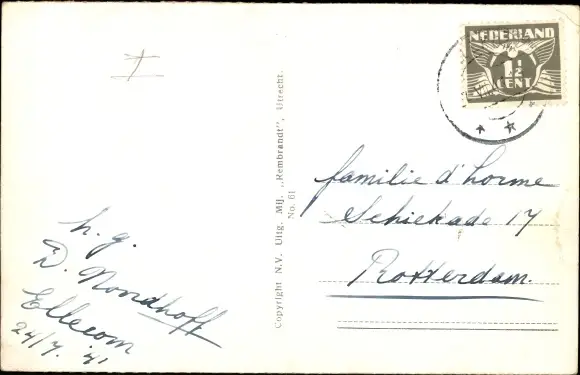 NEDERLAND
1½
CENT
Copyright N.V. Uitg. Mij. „Rembrandt", Utrecht.
No. 61
familie d'Lorme
Schiekade 17
Rotterdam.
h. g.
D. Noordhoff
Ellecom
24/7. '41